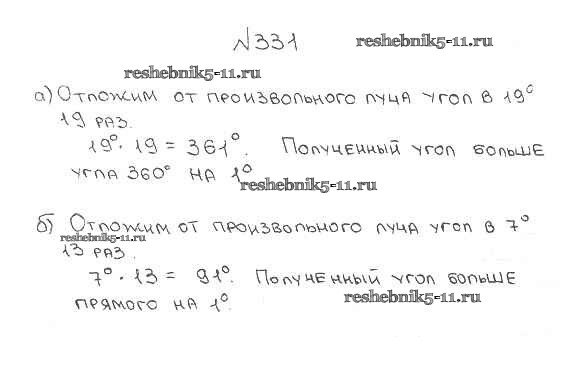 №331 reshebnik5-11.ru
reshebnik5-11.ru
а) Отложим от произвольного луча угол в 19°
19 раз.
19° · 19 = 361°. Полученный угол больше
угла 360° на 1°
reshebnik5-11.ru
б) Отложим от произвольного луча угол в 7°
reshebnik5-11.ru
13 раз.
7° · 13 = 91°. Полученный угол больше
прямого на 1°.
reshebnik5-11.ru